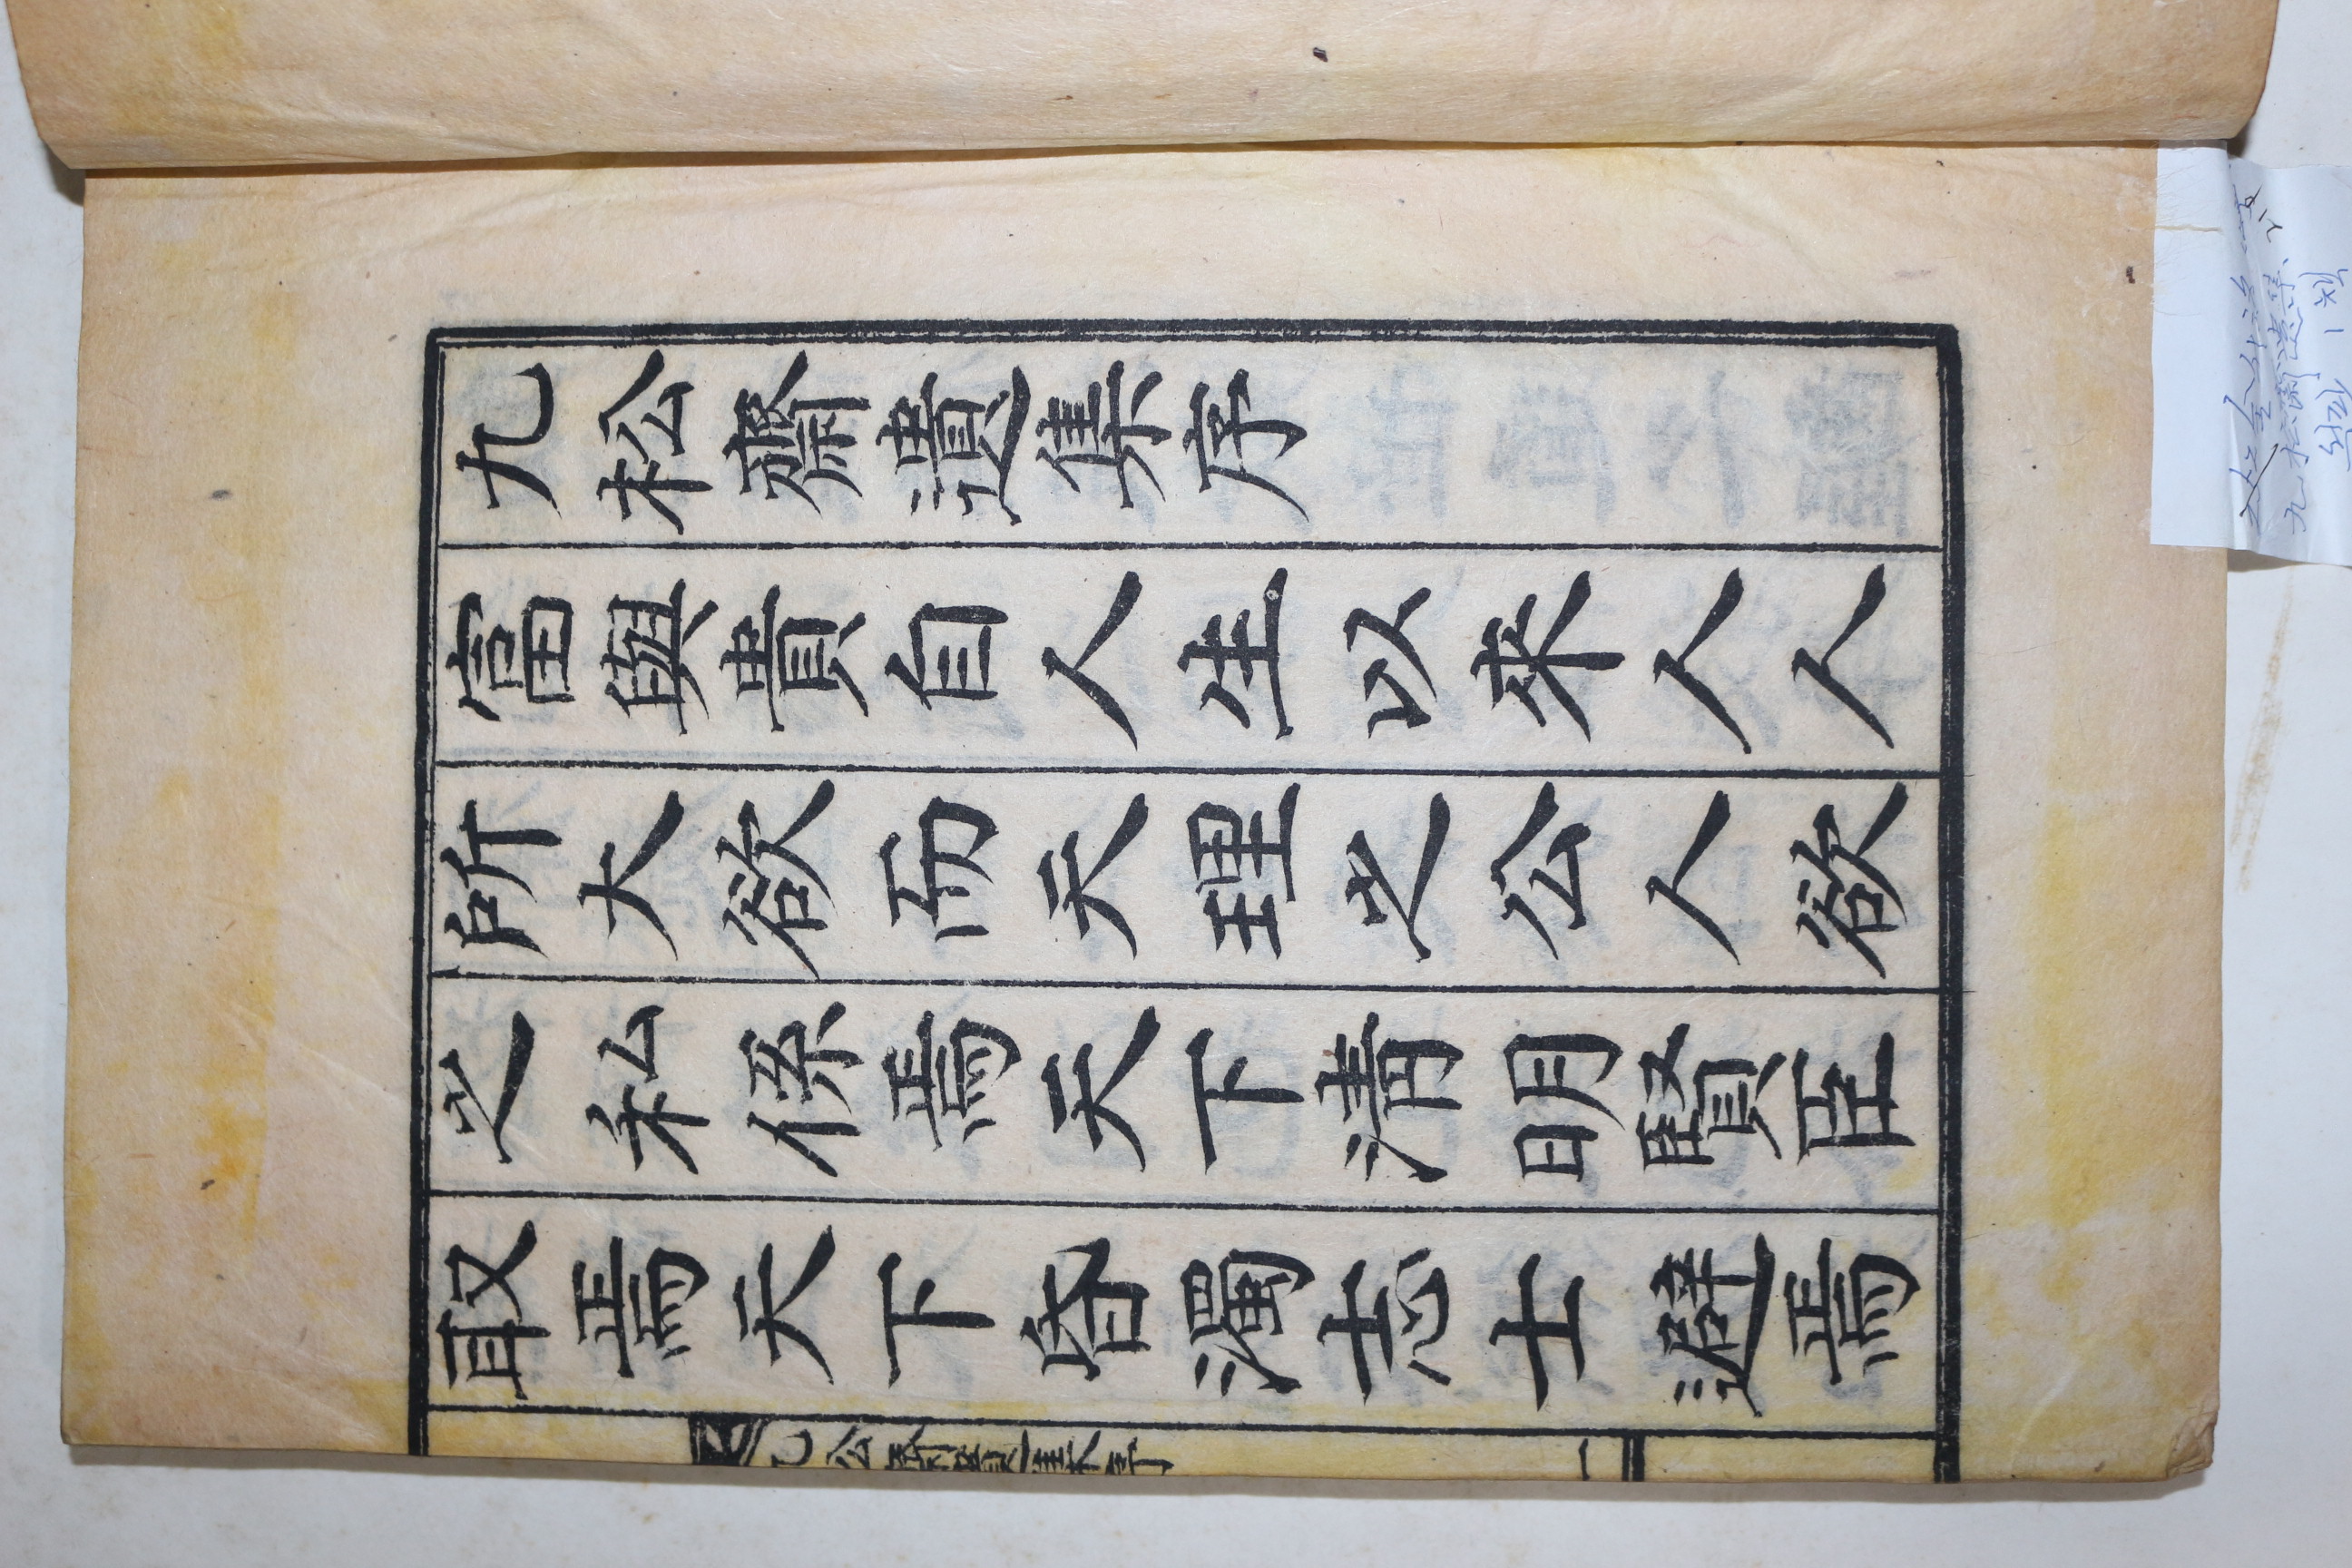 九松齋遺集序
富與貴自人生以來人人
所大欲而天理之公人欲
之私係焉天下淸明賢臣
取焉天下昏濁志士避焉
一
九松齋遺集
목판 1책